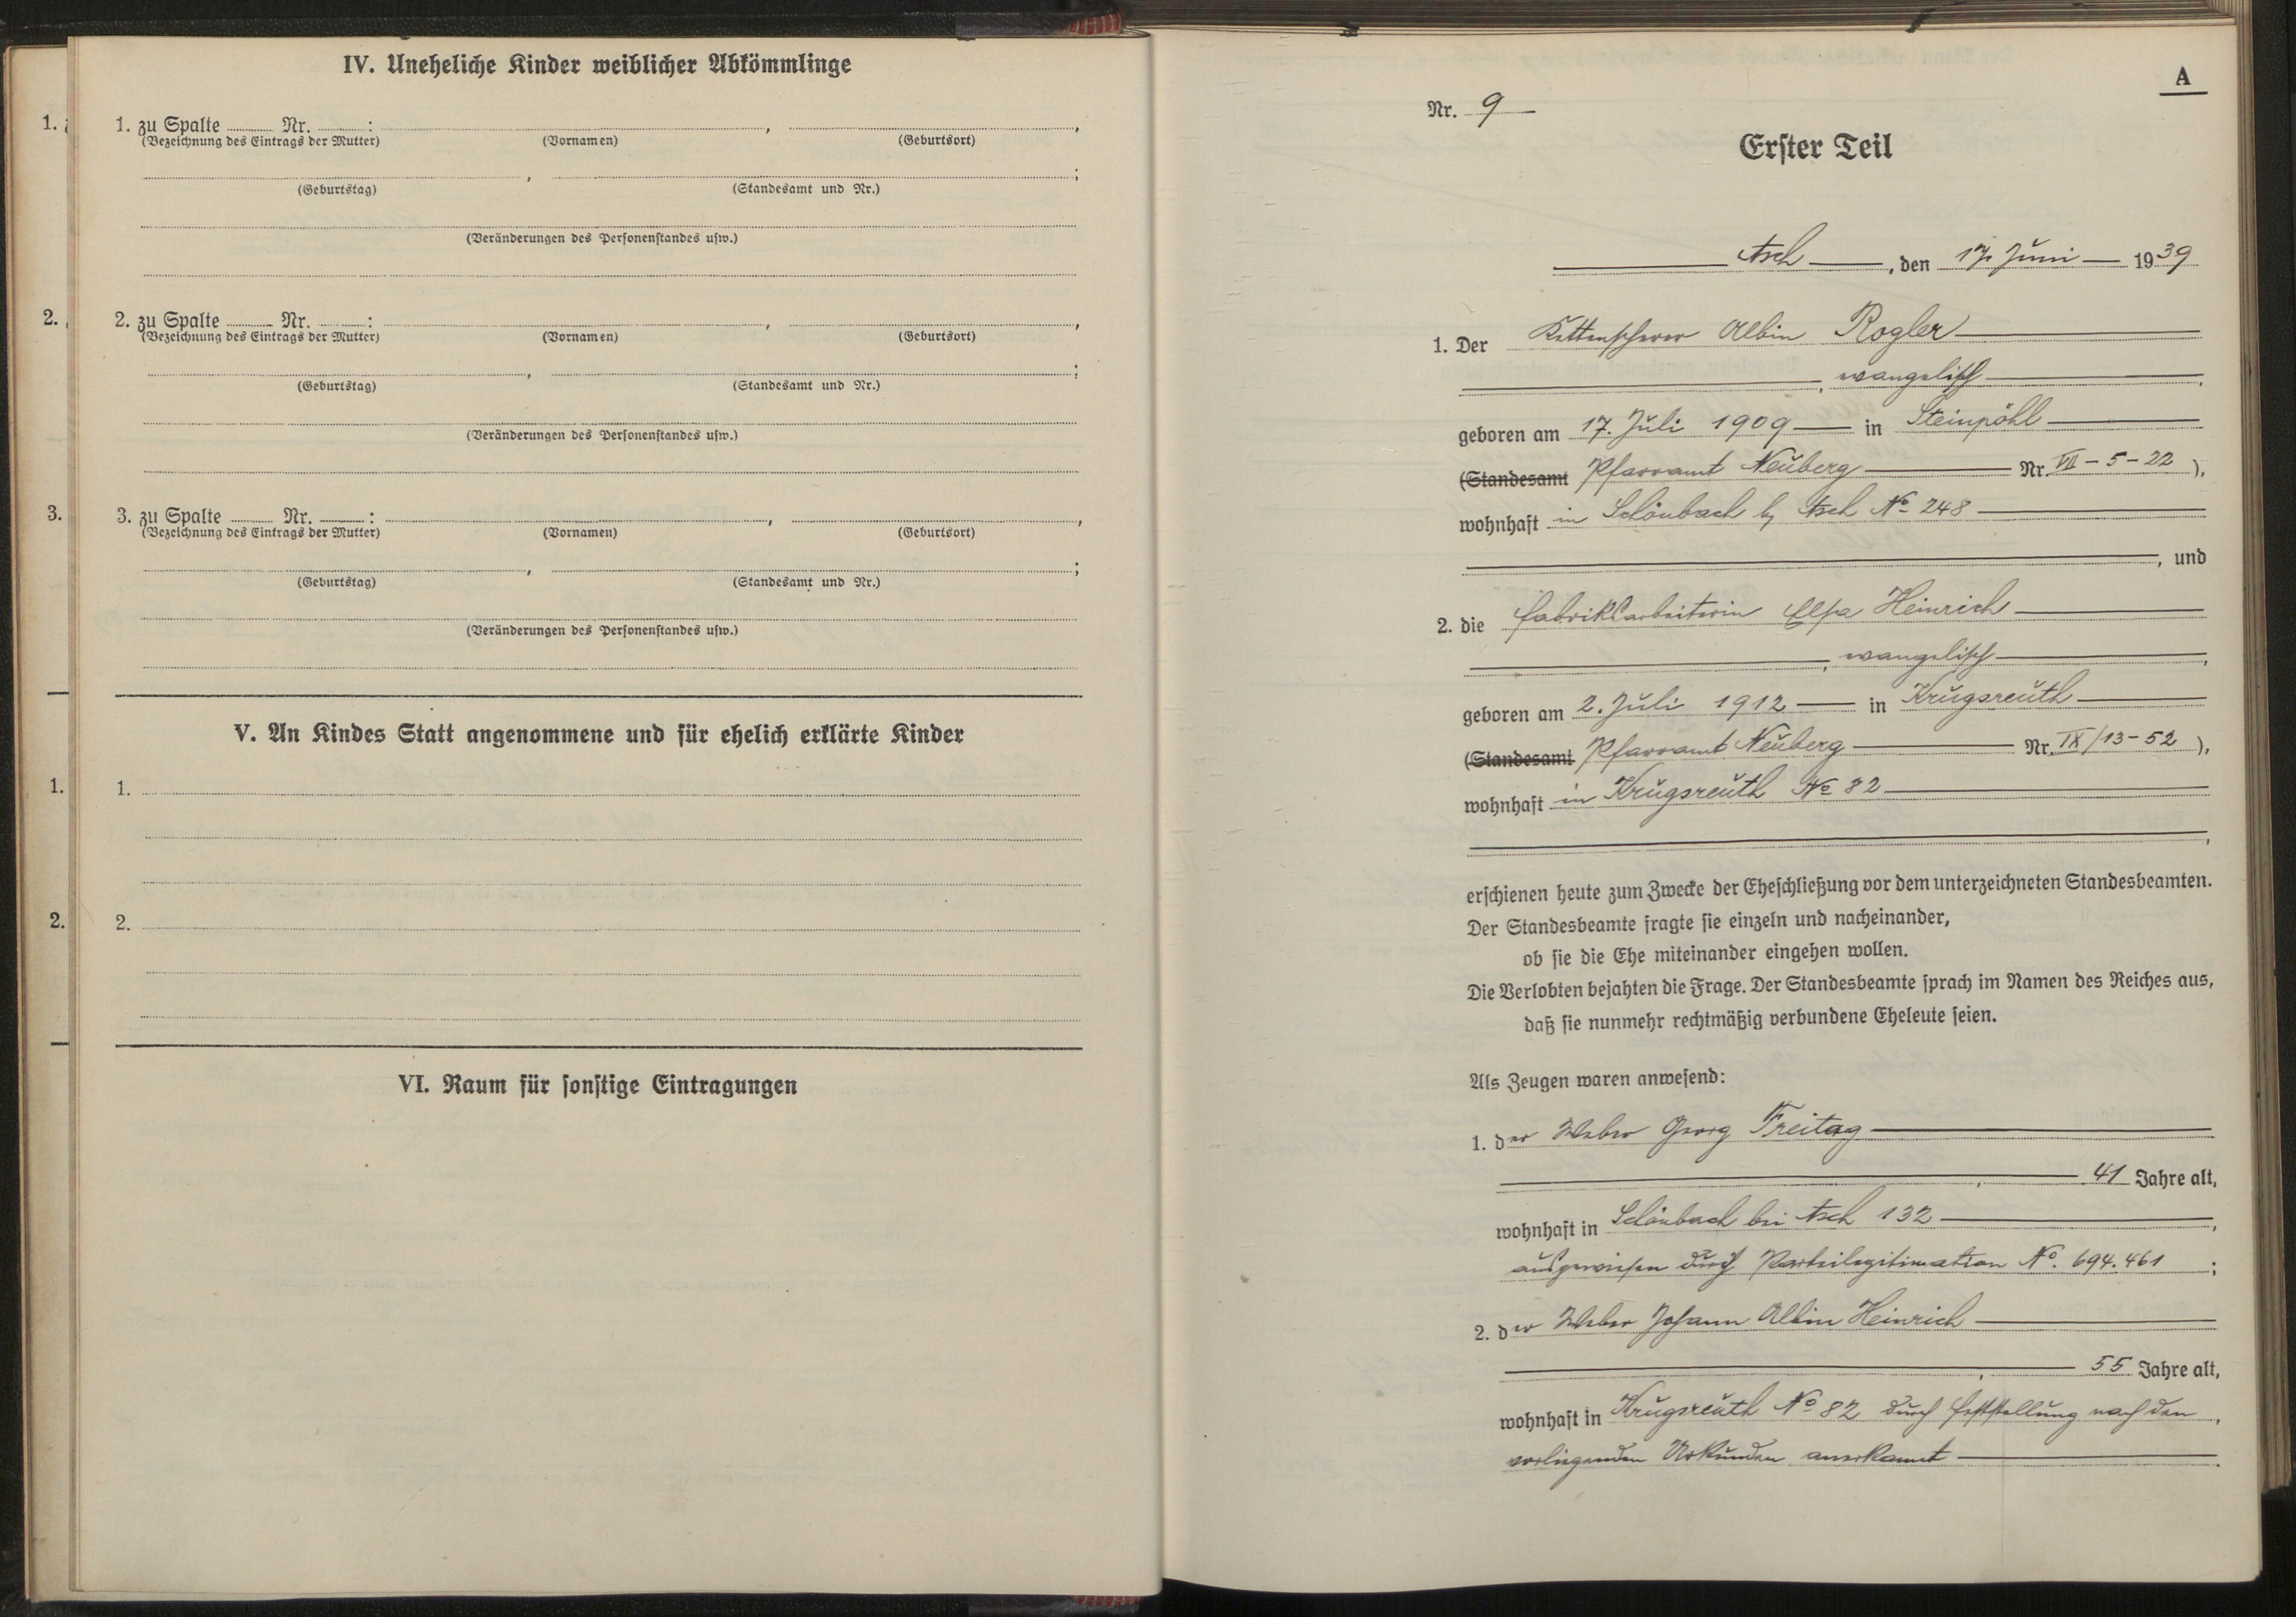 IV. Uneheliche Kinder weiblicher Abkömmlinge
1.
1. zu Spalte Nr. : , ,
(Bezeichnung des Eintrags der Mutter) (Vornamen) (Geburtsort)
, ;
(Geburtstag) (Standesamt und Nr.)
(Veränderungen des Personenstandes usw.)
2.
2. zu Spalte Nr. : , ,
(Bezeichnung des Eintrags der Mutter) (Vornamen) (Geburtsort)
, ;
(Geburtstag) (Standesamt und Nr.)
(Veränderungen des Personenstandes usw.)
3.
3. zu Spalte Nr. : , ,
(Bezeichnung des Eintrags der Mutter) (Vornamen) (Geburtsort)
, ;
(Geburtstag) (Standesamt und Nr.)
(Veränderungen des Personenstandes usw.)
V. An Kindes Statt angenommene und für ehelich erklärte Kinder
1.
1.
2.
2.
VI. Raum für sonstige Eintragungen
A
Nr. 9
Erster Teil
Asch, den 17. Juni 1939
1. Der Kettenscherer Albin Rogler
, evangelisch,
geboren am 17. Juli 1909 in Steinpöhl
(Standesamt Pfarramt Neuberg Nr. VII-5-22),
wohnhaft in Schönbach b. Asch No 248
, und
2. die Fabriksarbeiterin Elsa Heinrich
, evangelisch,
geboren am 2. Juli 1912 in Krugsreuth
(Standesamt Pfarramt Neuberg Nr. IX/13-52),
wohnhaft in Krugsreuth No 82
,
erschienen heute zum Zwecke der Eheschließung vor dem unterzeichneten Standesbeamten.
Der Standesbeamte fragte sie einzeln und nacheinander,
ob sie die Ehe miteinander eingehen wollen.
Die Verlobten bejahten die Frage. Der Standesbeamte sprach im Namen des Reiches aus,
daß sie nunmehr rechtmäßig verbundene Eheleute seien.
Als Zeugen waren anwesend:
1. der Weber Georg Freitag
, 41 Jahre alt,
wohnhaft in Schönbach bei Asch 132,
ausgewiesen durch Parteilegitimation No. 694.461;
2. der Weber Johann Albin Heinrich
, 55 Jahre alt,
wohnhaft in Krugsreuth No 82 durch Feststellung nach den,
vorliegenden Urkunden anerkannt.